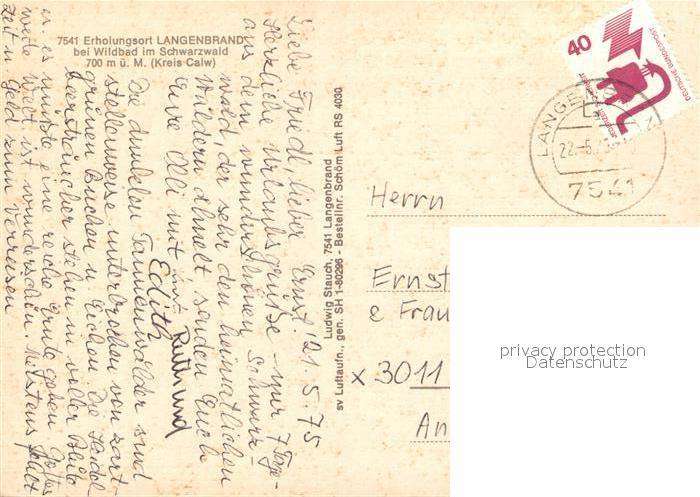 7541 Erholungsort LANGENBRAND
bei Wildbad im Schwarzwald
700 m ü. M. (Kreis Calw)
Liebe Friedl, lieber Ernst! 21.5.75
Herzliche Urlaubsgrüße – nur 7 Tage –
aus dem wunderschönen Schwarz-
wald, der sehr den heimatlichen
Wäldern ähnelt senden Euch
Eure Olli mit Ruth und
Edith
Die dunklen Tannenwälder sind
stellenweise unterbrochen von zart-
grünen Buchen u. Eichen. Die Heidel-
beersträucher stehen in voller Blüte
u. es müsste eine reiche Ernte geben. Gottes
weite Welt ist wunderschön. Meistens fehlt
Zeit u. Geld zum Verreisen
Ludwig Stauch, 7541 Langenbrand
sv Luftaufn., gen. SH 1-80296 - Bestellnr. Schöm Luft RS 4030
40
DEUTSCHE BUNDESPOST
LANGENBRAND
22.-5.75
7541
Herrn
Ernst
e Frau
x 3011
An
privacy protection
Datenschutz